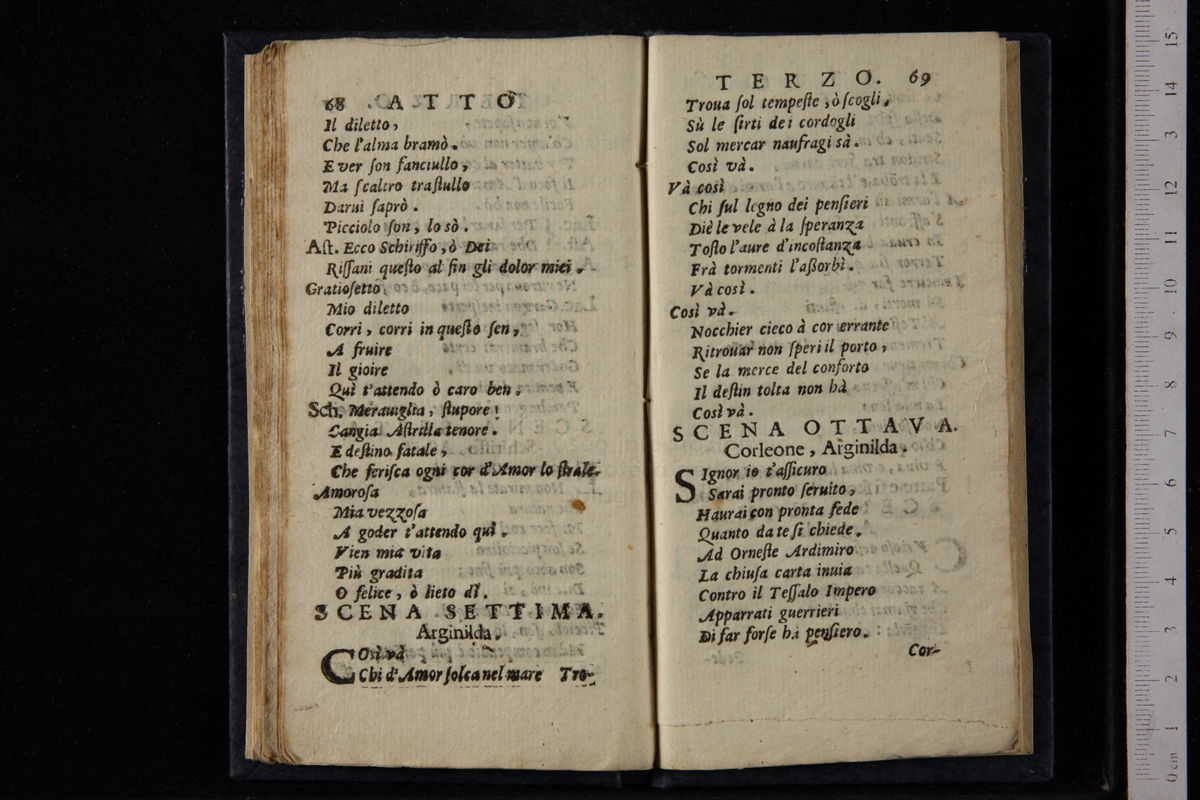 68 . A T T O
Il diletto,
Che l'alma bramò.
E ver ſon fanciullo,
Ma ſcaltro traſtullo
Darui ſaprò.
Picciolo ſon, lo sò.
Aſt. Ecco Schiriffo, ò Dei
Riſſani queſto al fin gli dolor miei.
Gratioſetto
Mio diletto
Corri, corri in queſto ſen,
A fruire
Il gioire
Quì t'attendo ò caro ben.
Sch. Merauiglia, ſtupore!
Cangia Aſtrilla tenore.
E deſtino fatale,
Che feriſca ogni cor d'Amor lo ſtrale.
Amoroſa
Mia vezzoſa
A goder t'attendo quì.
Vien mia vita
Più gradita
O felice, ò lieto dì.
SCENA SETTIMA.
Arginilda.
COsì và
Chi d'Amor ſolca nel mare Tro-
T E R Z O. 69
Troua ſol tempeſte, ò ſcogli,
Sù le ſirti dei cordogli
Sol mercar naufragi sà.
Così và.
Và così
Chi ſul legno dei penſieri
Diè le vele à la ſperanza
Toſto l'aure d'incoſtanza
Frà tormenti l'aßorbì.
Và così.
Così và.
Nocchier cieco à cor errante
Ritrouar non ſperi il porto,
Se la merce del conforto
Il deſtin tolta non hà
Così và.
SCENA OTTAVA.
Corleone, Arginilda.
SIgnor io t'aſſicuro
Sarai pronto ſeruito,
Haurai con pronta fede
Quanto da te ſi chiede.
Ad Orneſte Ardimiro
La chiuſa carta inuia
Contro il Teſſalo Impero
Apparrati guerrieri
Di far forſe hà penſiero.
Cor-